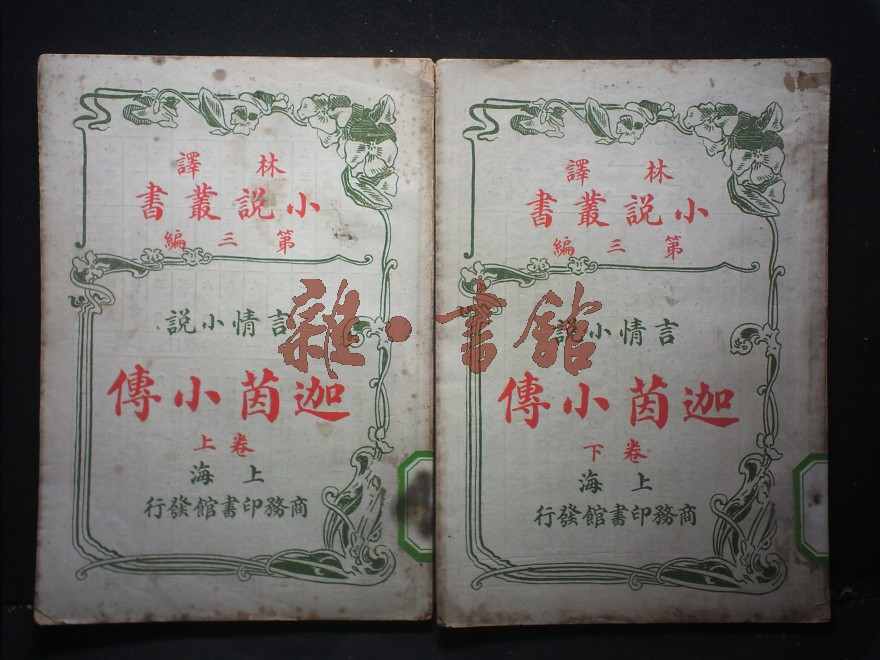 林譯
小說叢書
第三編
言情小說
迦茵小傳
卷上
上海
商務印書館發行
林譯
小說叢書
第三編
言情小說
迦茵小傳
卷下
上海
商務印書館發行
雜·書館